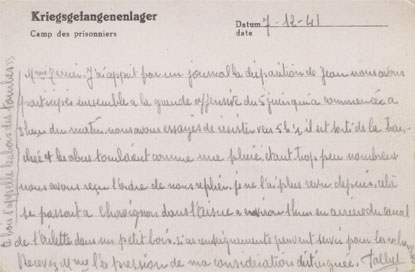 Kriegsgefangenenlager
Camp des prisonniers
Datum
date
7-12-41
Mme J'ai appris par un journal la disparition de Jean nous avons
participés ensemble a la grande offensive du 5 juin qui a commencée a
du matin, nous avons essayés de resister vers 5 h ½ il est sorti de la tran
chée et les obus tombaient comme une pluie, etant trop peu nombreux
nous avons reçu l'ordre de nous replier, je ne l'ai plus revu depuis, cela
se passait a Chavignon dans l'Aisne a environ en arriere du canal
de l'Ailette dans un petit bois, si ces renseignements peuvent servir pour le
Recevez, l'expression de ma consideration distinguée.
bois des